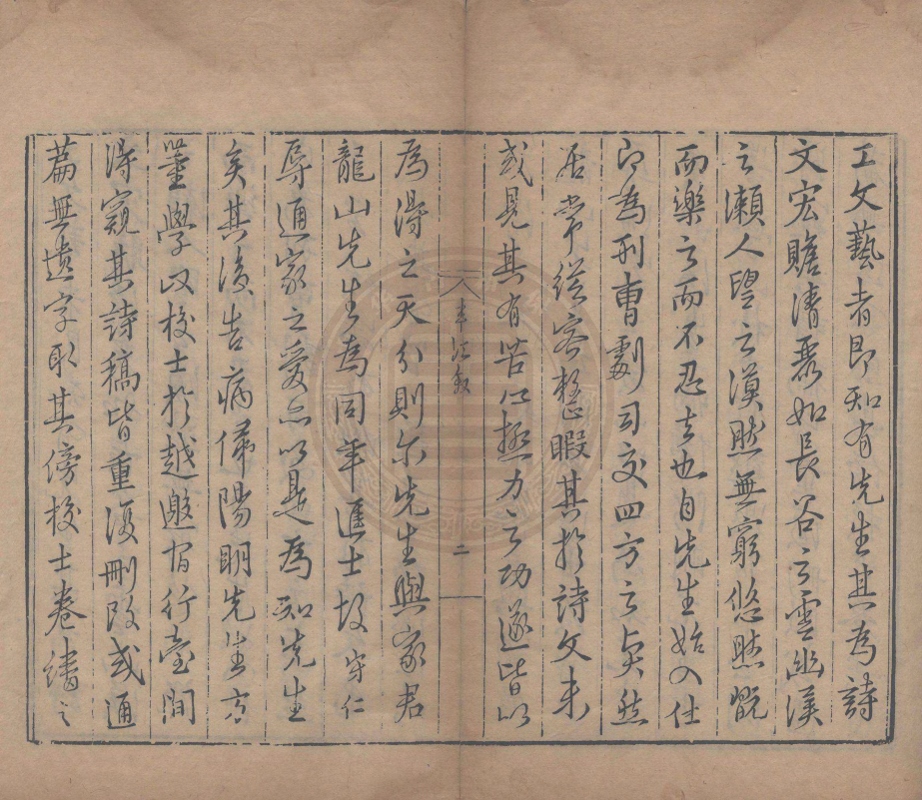 工文藝者即知有先生其為詩
文宏贍清麗如長谷之雲幽溪
之瀨人望之漠然無窮悠然翫
而樂之而不忍去也自先生始入仕
即為刑曹劇司交四方之然
居常從容整暇其於詩文未
或見其有苦心極力之功遂皆以
半江叙 二
為得之天分則尔先生與家君
龍山先生為同年進士故守仁
辱通家之愛亦以是為知先生
矣其後告病歸陽明先生方
董學政校士於越邀宿行臺間
得窺其詩稿皆重復刪改或通
篇無遺字取其傍校士卷繙之